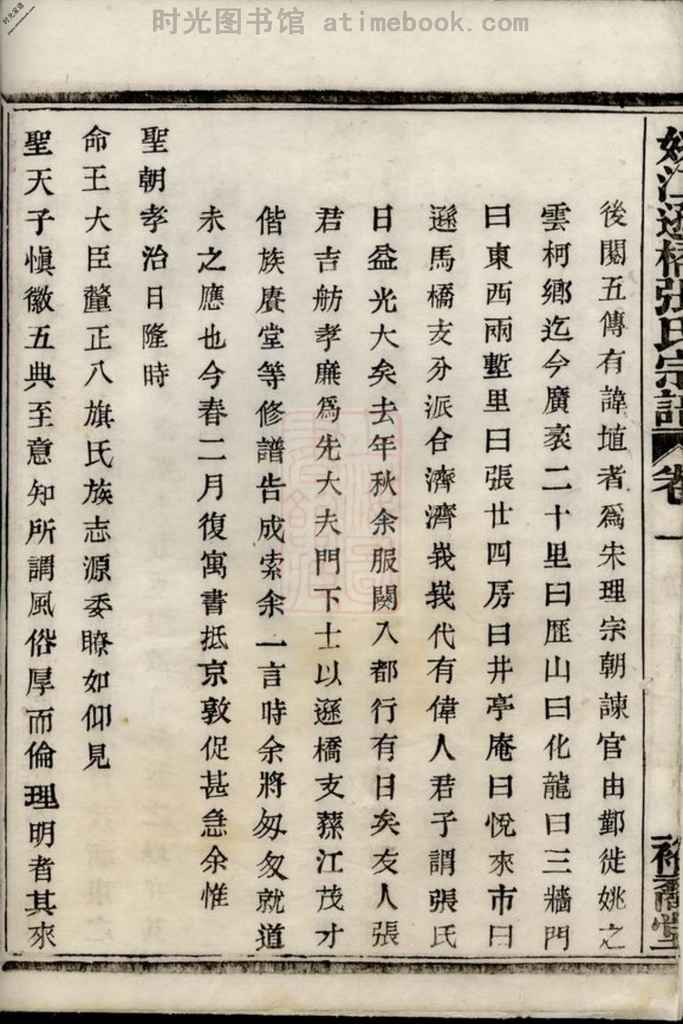 时光图书馆 atimebook.com
姚江遜橋張氏宗譜 卷一 裕齋堂
後閱五傳有諱埴者爲朱理宗朝諫官由鄞徙姚之
雲柯鄉迄今廣袤二十里曰歷山曰化龍曰三牆門
曰東西兩塹里曰張廿四房曰井亭庵曰悅來市曰
遜馬橋支分派合濟濟峩峩代有偉人君子謂張氏
日益光大矣去年秋余服闋入都行有日矣友人張
君吉舫孝廉爲先大夫門下士以遜橋支蓀江茂才
偕族賡堂等修譜告成索余一言時余將匆匆就道
未之應也今春二月復寓書抵京敦促甚急余惟
聖朝孝治日隆時
命王大臣釐正八旗氏族志源委瞭如仰見
聖天子愼徽五典至意知所謂風俗厚而倫理明者其來